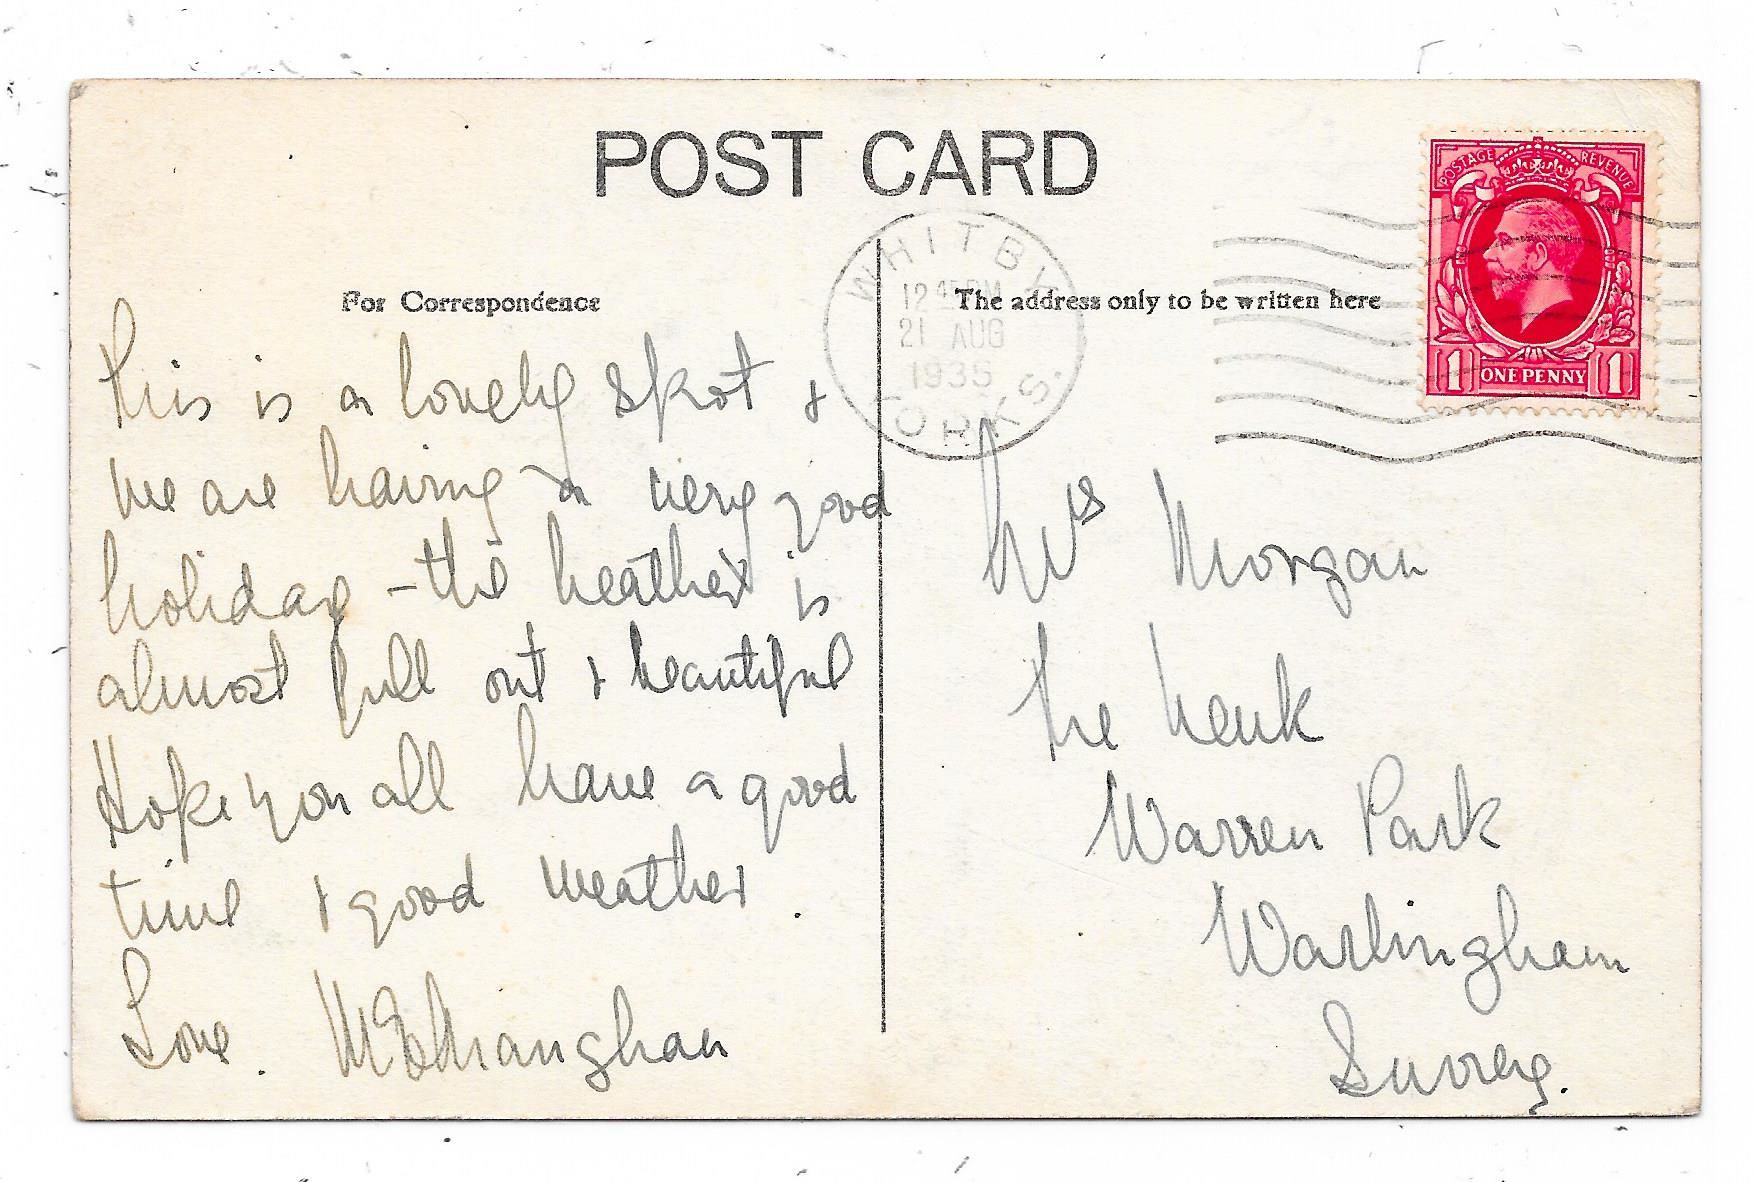 POST CARD
For Correspondence
This is a lovely spot &
we are having a very good
holiday - the heather is
almost full out & beautiful
Hope you all have a good
time & good weather.
Love.
WHITBY
12 45 PM
21 AUG
1935
YORKS.
The address only to be written here
POSTAGE REVENUE
1 ONE PENNY 1
Mrs Morgan
The
Warren Park
Warlingham
Surrey.